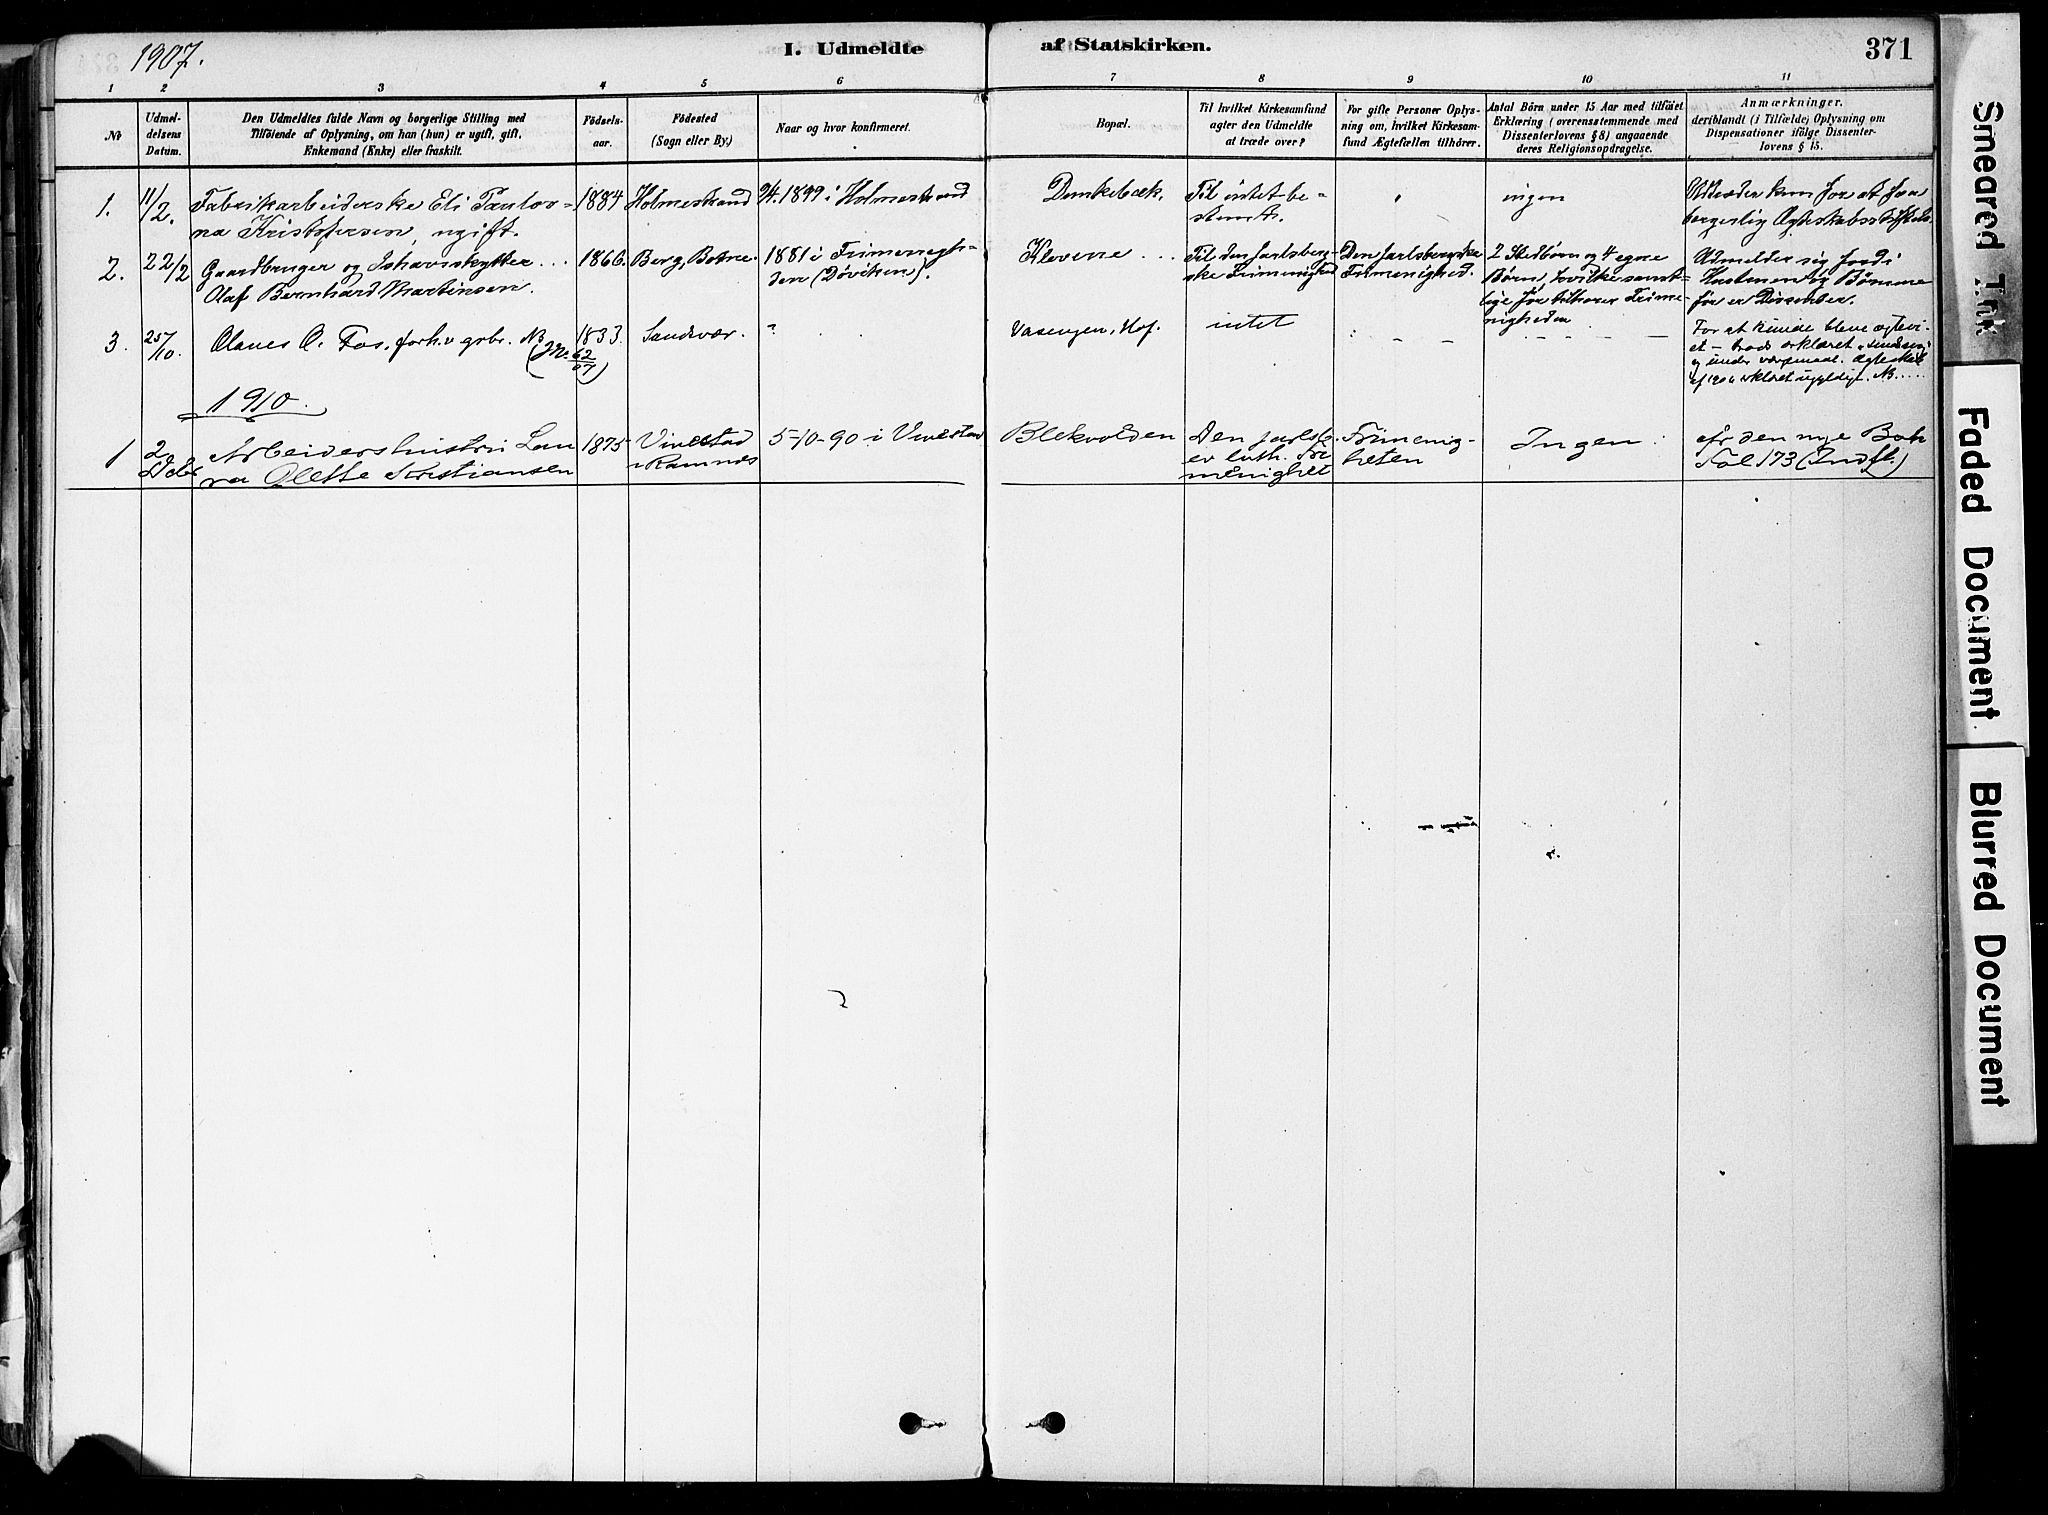 1907.
I. Udmeldte
af Statskirken.
371
1 2 3 4 5 6 7 8 9 10 11
No
Udmel-
delsens
Datum.
Den Udmeldtes fulde Navn og borgerlige Stilling med
Tilföiende af Oplysning, om han (hun) er ugift, gift,
Enkemand (Enke) eller fraskilt.
Födsels-
aar.
Födested
(Sogn eller By.)
Naar og hvor konfirmeret.
Bopæl.
Til hvilket Kirkesamfund
agter den Udmeldte
at træde over?
For gifte Personer Oplys-
ning om, hvilket Kirkesam-
fund Ægtefællen tilhörer.
Antal Börn under 15 Aar med tilföiet
Erklæring (overensstemmende med
Dissenterlovens § 8) angaaende
deres Religionsopdragelse.
Anmærkninger,
deriblandt (i Tilfælde) Oplysning om
Dispensationer ifölge Dissenter-
lovens § 15.
1.
11/2.
Fabrikarbeiderske Eli Paulov-
na Kristofersen, ugift.
1884
Holmestrand
1899 i Holmestrand
Dunkebæk.
Til intet be-
stemt.
"
ingen
Udtræder kun for at faa
borgerlig Ægteskabsstiftelse.
2.
22/2
Gaardbruger og Ishavsskytter...
Olaf Bernhard Martinsen.
1866.
Berg, Botne.
1881 i Frimenigh-
den (Døviken).
Klovene ...
Til den Jarlsberg-
ske Frimenighed
Den Jarlsbergske
Frimenighed.
2 Stedbørn og 4 egne
Børn, hvilke samt-
lige før tilhører Frime-
nigheden
Udmelder sig fordi
Hustruen og Børnene
før er Dissenter.
3.
25/10.
Olaves O. Fos, forh.v. gbr. NB
(JN. 62/07)
1833.
Sandsvær.
"
Vasengen, Hof.
intet
" - - -
- - - -
For at kunde blive ægtevi-
et - trods erklæret sindssyg
og under værgemaal. Ægteskab
af 1906 erklæret ugyldigt. NB.....
1910.
1
2 Debr
Arbeiderhustru Lau
ra Olette Kristiansen
1875
Vivestad
i Ramnes
5-10-90 i Vivestad
Blekvolden
Den jarlsb.
ev luth. Fri
menighet
Frimenig-
heten
Ingen
Ar den nye Bok
Fol 173 (Indfl.)
Smeared Ink
Faded Document
Blurred Document